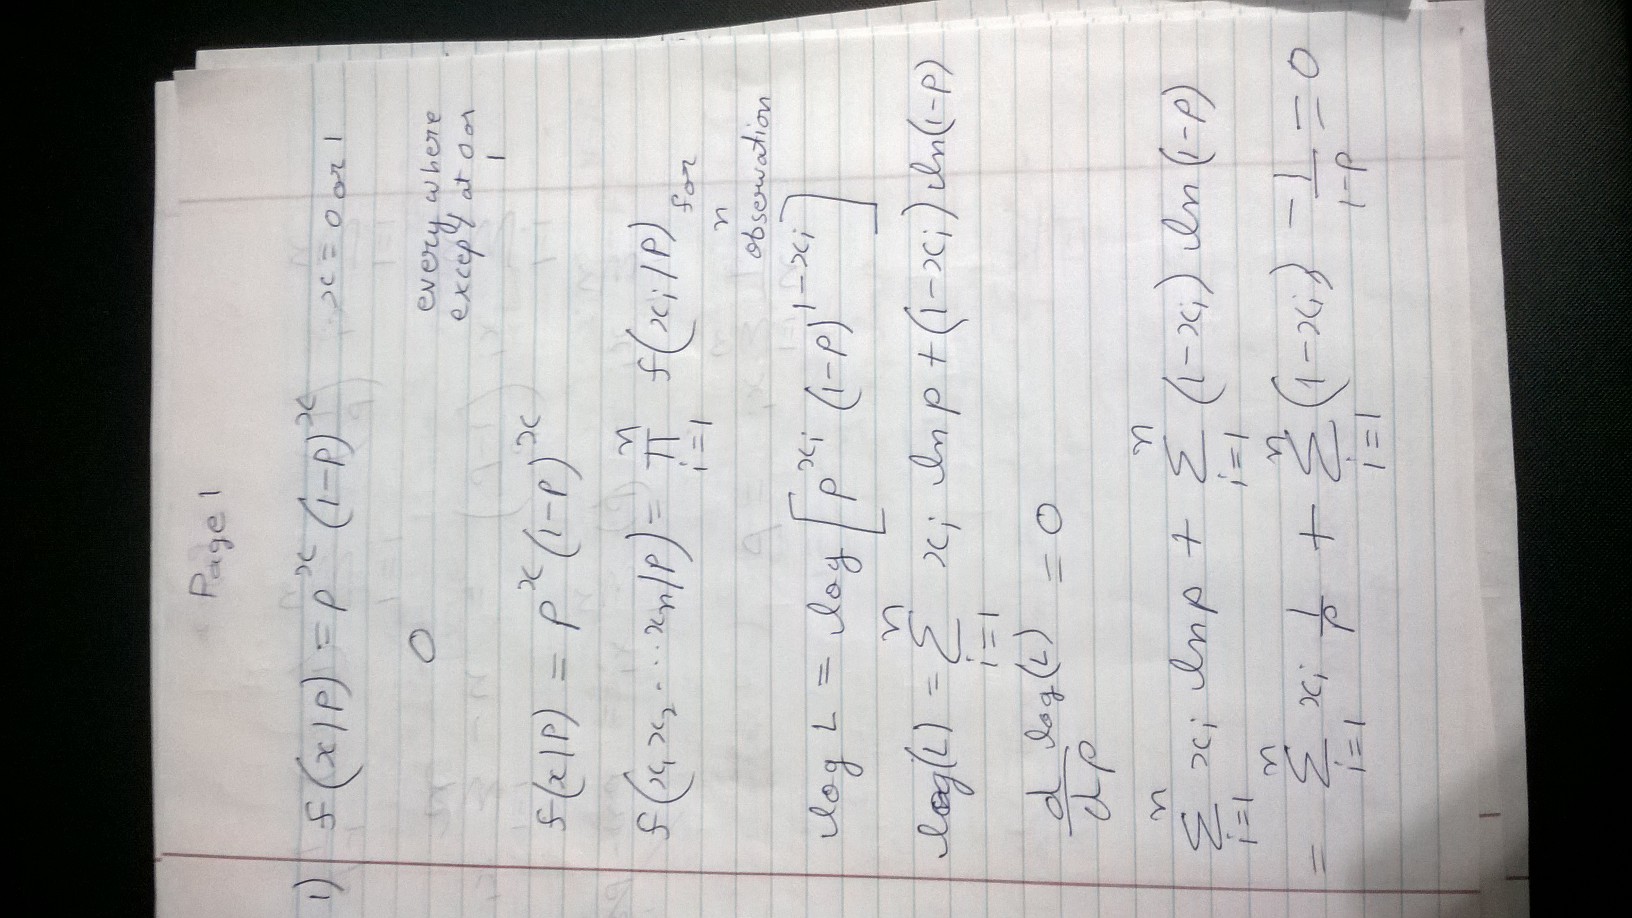 Page 1
1) f(x|P) = p^x (1-p)^x x = 0 or 1
0 every where
except at 0 or
1
f(x|P) = p^x (1-p)^x
f(x₁ x₂ ... xn|P) = n∏i=1 f(xi|P) for
n
observation
log L = log [p^xi (1-p)^1-xi]
log(L) = n∑i=1 xi ln p + (1-xi) ln(1-p)
d/dp log(L) = 0
n∑i=1 xi ln p + n∑i=1 (1-xi) ln(1-p)
= n∑i=1 xi 1/p + n∑i=1 (1-xi) - 1/1-p = 0